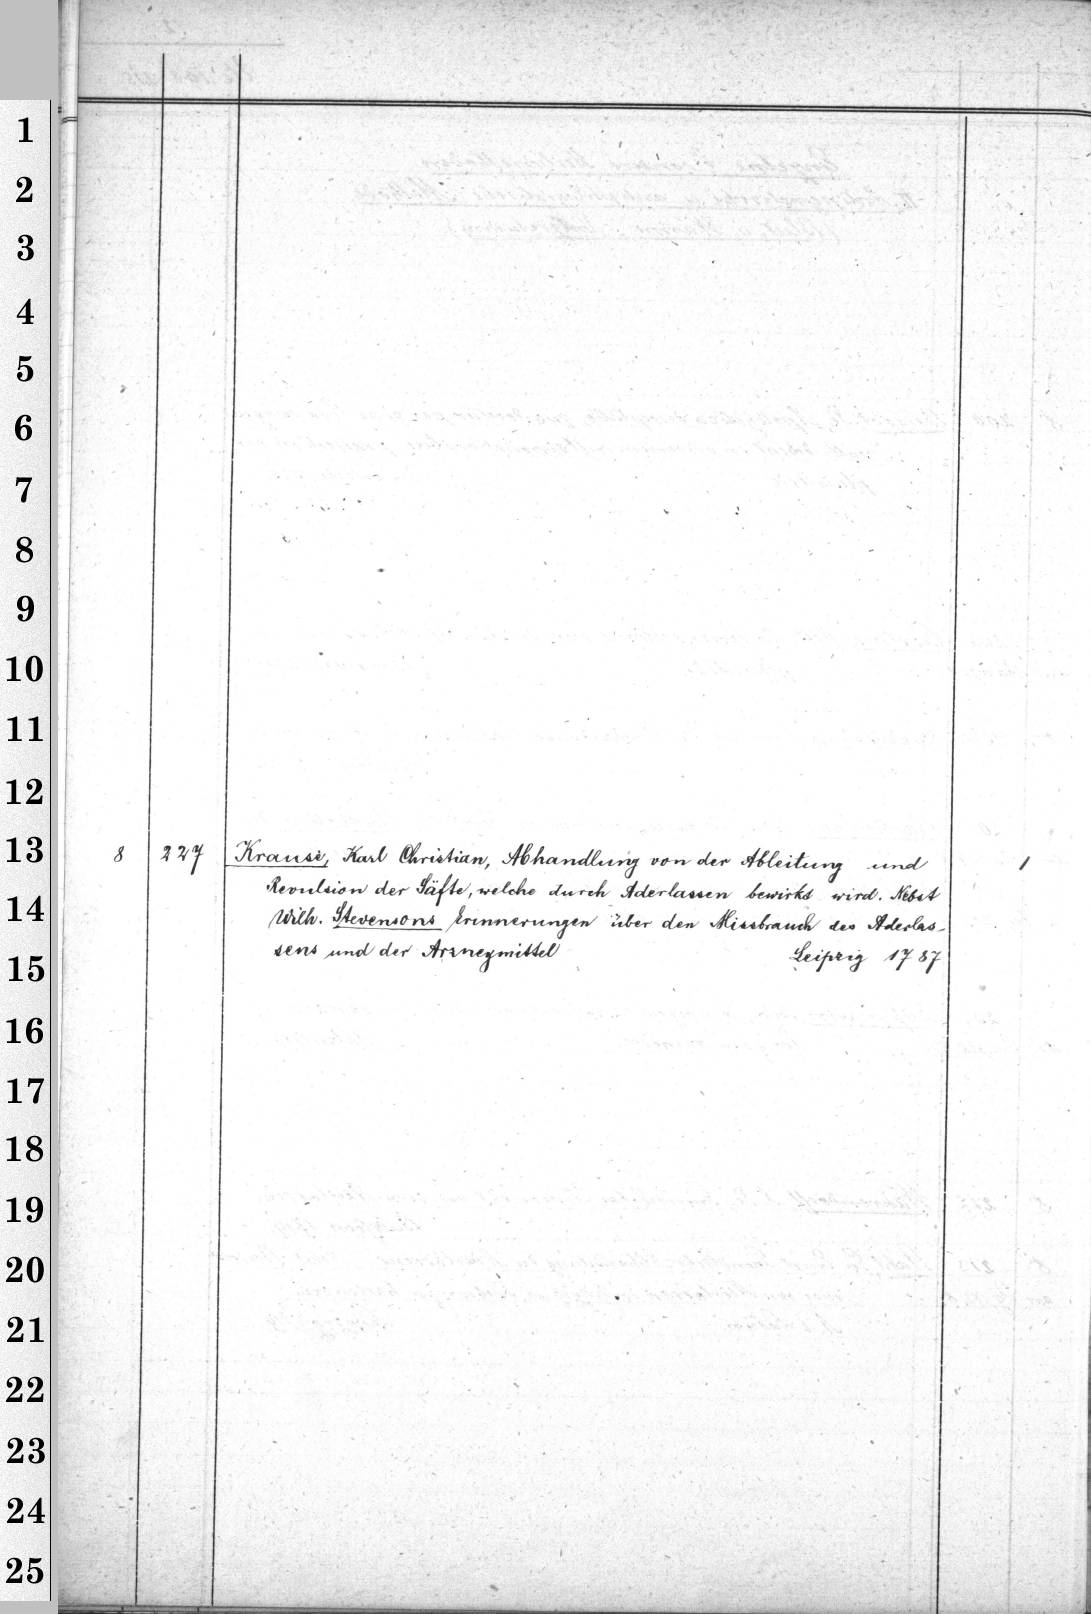 1
2
3
4
5
6
7
8
9
10
11
12
13
8 227 Krause, Karl Christian, Abhandlung von der Ableitung und 1
Revulsion der Säfte, welche durch Aderlassen bewirkt wird. Nebst
14
Wilh. Stevensons Erinnerungen über den Missbrauch des Aderlas-
sens und der Arzneymittel Leipzig 1787
15
16
17
18
19
20
21
22
23
24
25